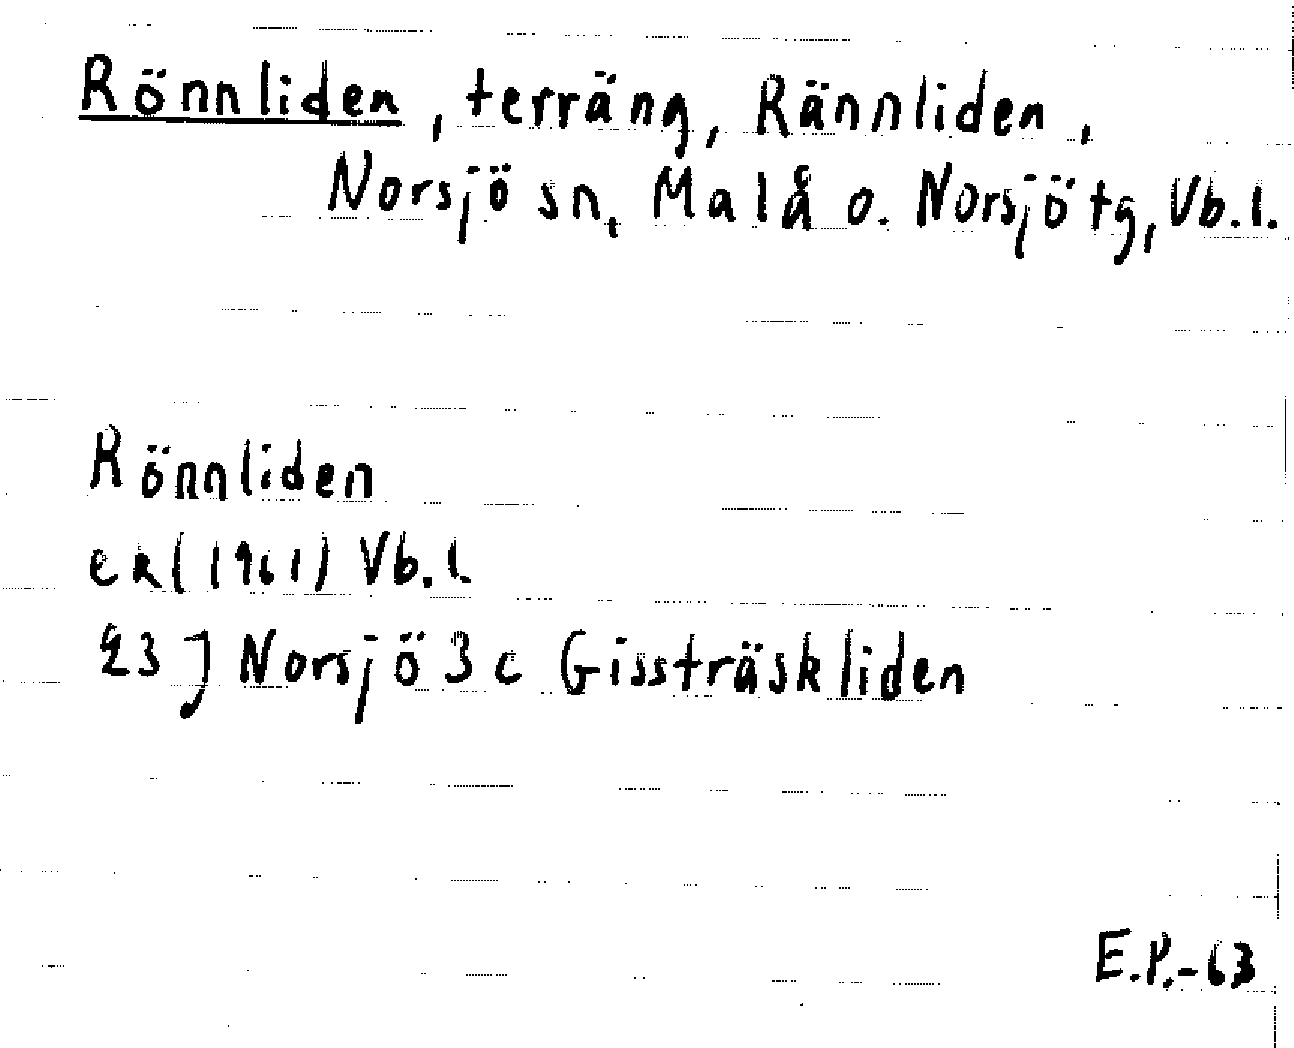 Rönnliden, terräng, Rännliden,
Norsjö sn, Malå o. Norsjö tg, Vb.l.
Rönnliden
ek (1961) Vb.l
23 J Norsjö 3 c Gissträskliden
E.P.-63